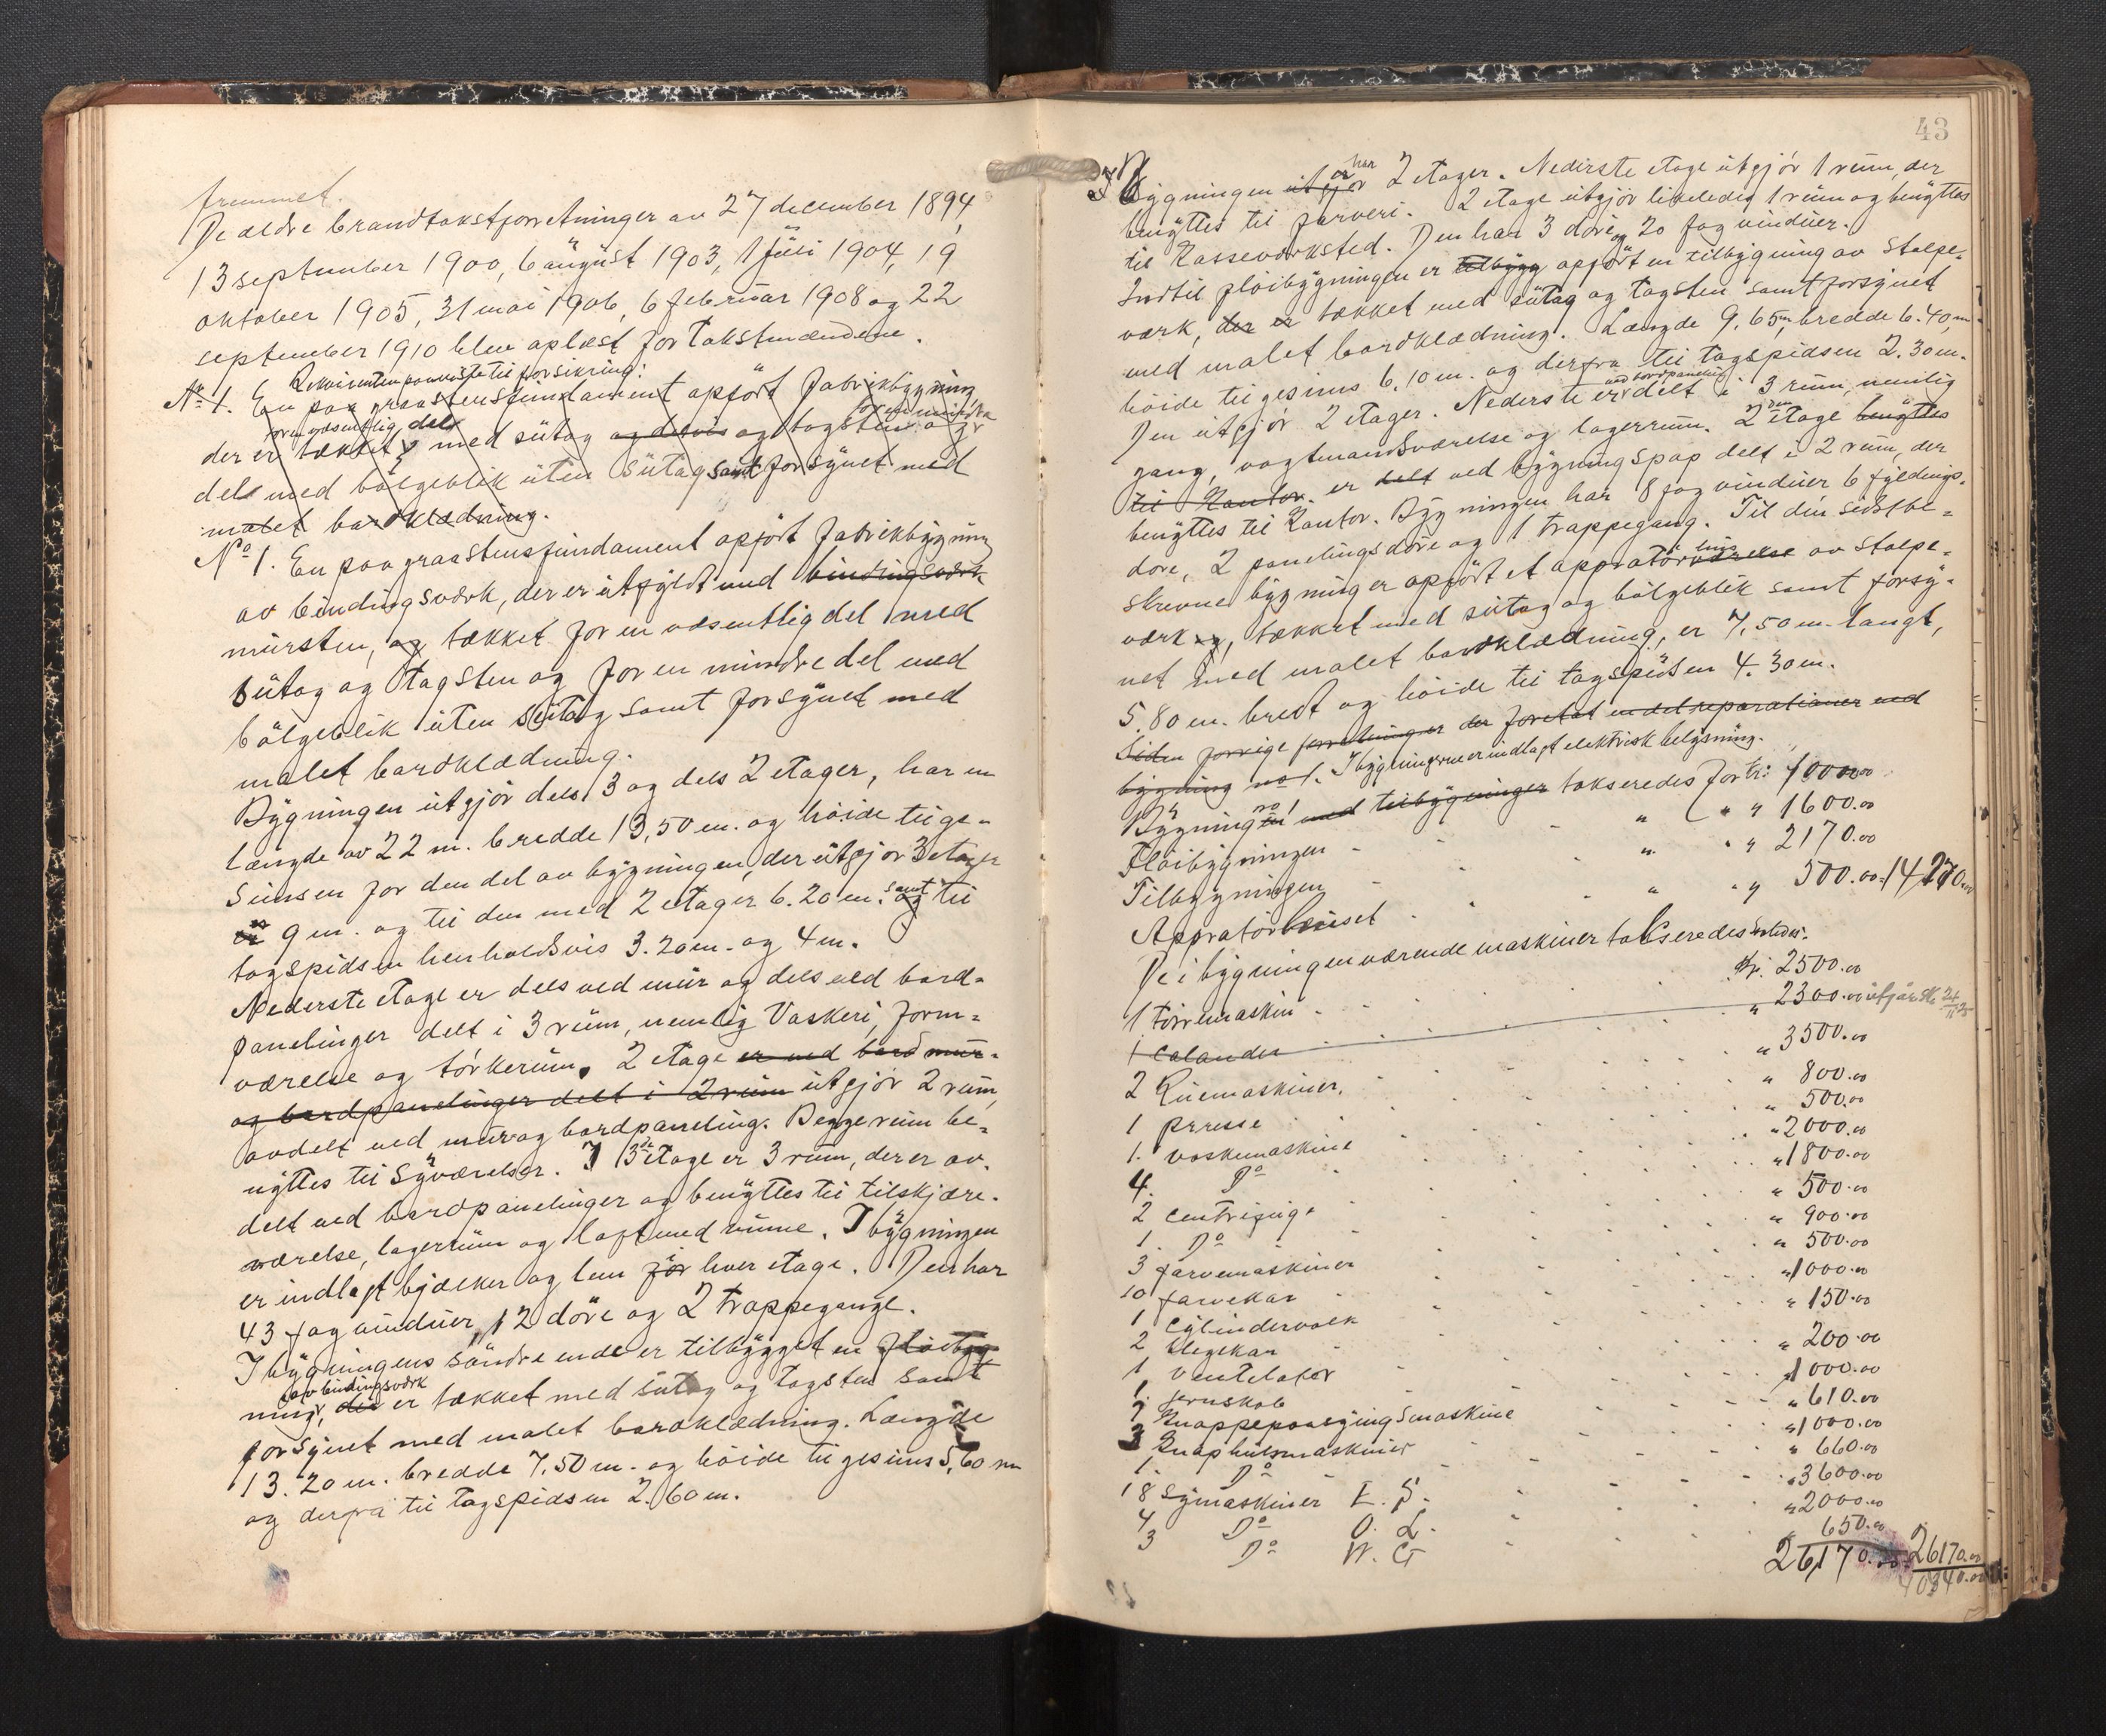 fremmet.
De ældre brandtakstforretninger av 27 december 1894,
13 september 1900, 6 august 1903, 1 Juli 1904, 19
oktober 1905, 31 mai 1906, 6 februar 1908 og 22
september 1910 blev oplæst for takstmændene.
Rekvirenten paaviste til forsikring:
No 1. En paa graastensfundament opført fabrikbygning
for en væsentlig del for en mindre
der er tækket med sutag og delvis og tagsten og
del med bølgeblik uten sutag samt forsynet med
malet bordklædning.
No 1. En paa graastensfundament opført fabrikbygning
av bindingsværk, der er utfyldt med bindingsværk
mursten, og tækket for en væsentlig del med
sutag og tagsten og for en mindre del med
bølgeblik uten sutag samt forsynet med
malet bordklædning.
Bygningen utgjør dels 3 og dels 2 etager, har en
længde av 22 m. bredde 13,50 m. og høide til ge-
simsen for den del av bygningen, der utgjør 3 etager
er 9 m. og til den med 2 etager 6.20 m. og samt til
tagspidsen henholdsvis 3.20 m. og 4 m.
Nederste etage er dels ved mur og dels ved bord-
panelinger delt i 3 rum, nemlig Vaskeri, form-
værelse og tørkerum. 2 etage er ved bord mur-
og bordpanelinger delt i 2 rum utgjør 2 rum,
avdelt ved mur og bordpaneling. Begge rum be-
nyttes til Syværelser. I 3de etage er 3 rum, der er av-
delt ved bordpanelinger og benyttes til tilskjære-
værelse, lagerrum og loft med vinne. I bygningen
er indlagt bjælker og lem for hver etage. Den har
43 fag vinduer, 12 døre og 2 trappegange.
I bygningens søndre ende er tilbygget en fløibyg
av bindingsværk
ning, der er tækket med sutag og tagsten samt
forsynet med malet bordklædning. Længde
13.20 m. bredde 7.50 m. og høide til gesims 5,60 m
og derfra til tagspidsen 2.60 m.
43
Bygningen utgjør har 2 etager. Nederste etage utgjør 1 rum, der
benyttes til farveri. 2 etage utgjør likeledes 1 rum og benyttes
til Kasseværksted. Den har 3 døre og 20 fag vinduer.
Indtil fløibygningen er tilbygg opført en tilbygning av stolpe-
værk, der er tækket med sutag og tagsten samt forsynet
med malet bordklædning. Længde 9.65 m, bredde 6.40 m
høide til gesims 6.10 m. og derfra til tagspidsen 2.30 m.
ved bordpaneling
Den utgjør 2 etager. Nederste er delt i 3 rum, nemlig
gang, vagtmandsværelse og lagerrum. 2den etage benyttes
til Kontor. er delt ved bygningspap delt i 2 rum, der
benyttes til Kontor. Bygningen har 8 fag vinduer 6 fyldings-
døre, 2 panelingsdøre og 1 trappegang. Til den sidstbe-
skrevne bygning er opført et appratørværelse hus av stolpe-
værk og, tækket med sutag og bølgeblik samt forsy-
net med malet bordklædning, er 7.50 m. langt,
5.80 m. bredt og høide til tagspidsen 4.30 m.
Siden forrige forretning er der foretat en del reparationer ved
bygning no 1. I bygningerne er indlagt elektrisk belysning.
Bygningen no 1 med tilbygninger takseredes for kr: 10000.00
Fløibygningen " " " 1600.00
Tilbygningen " " " 2170.00
Appratørhuset " " " 500.00 = 14270.00
De i bygningen værende maskiner takseredes saaledes:
1 tørremaskin kr. 2500.00
1 Calander " 2300.00 utgaar
2 Ruemaskiner " 3500.00
1 Presse " 800.00
1. vaskemaskine " 500.00
4. Do " 2000.00
2 centrifuge " 1800.00
1. Do " 500.00
3 farvemaskiner " 900.00
10 farvekar " 500.00
1 Cylindervalk " 1000.00
2 blegekar " 150.00
1 Ventelator " 200.00
1. jernskab " 1000.00
1 Knappepaasyingsmaskine " 610.00
3 Knaphulsmaskiner " 1000.00
1. Do " 660.00
18 symaskiner " 3600.00
4 Do O. L. " 2000.00
3 Do W. G " 650.00
26,170.00 26170.00